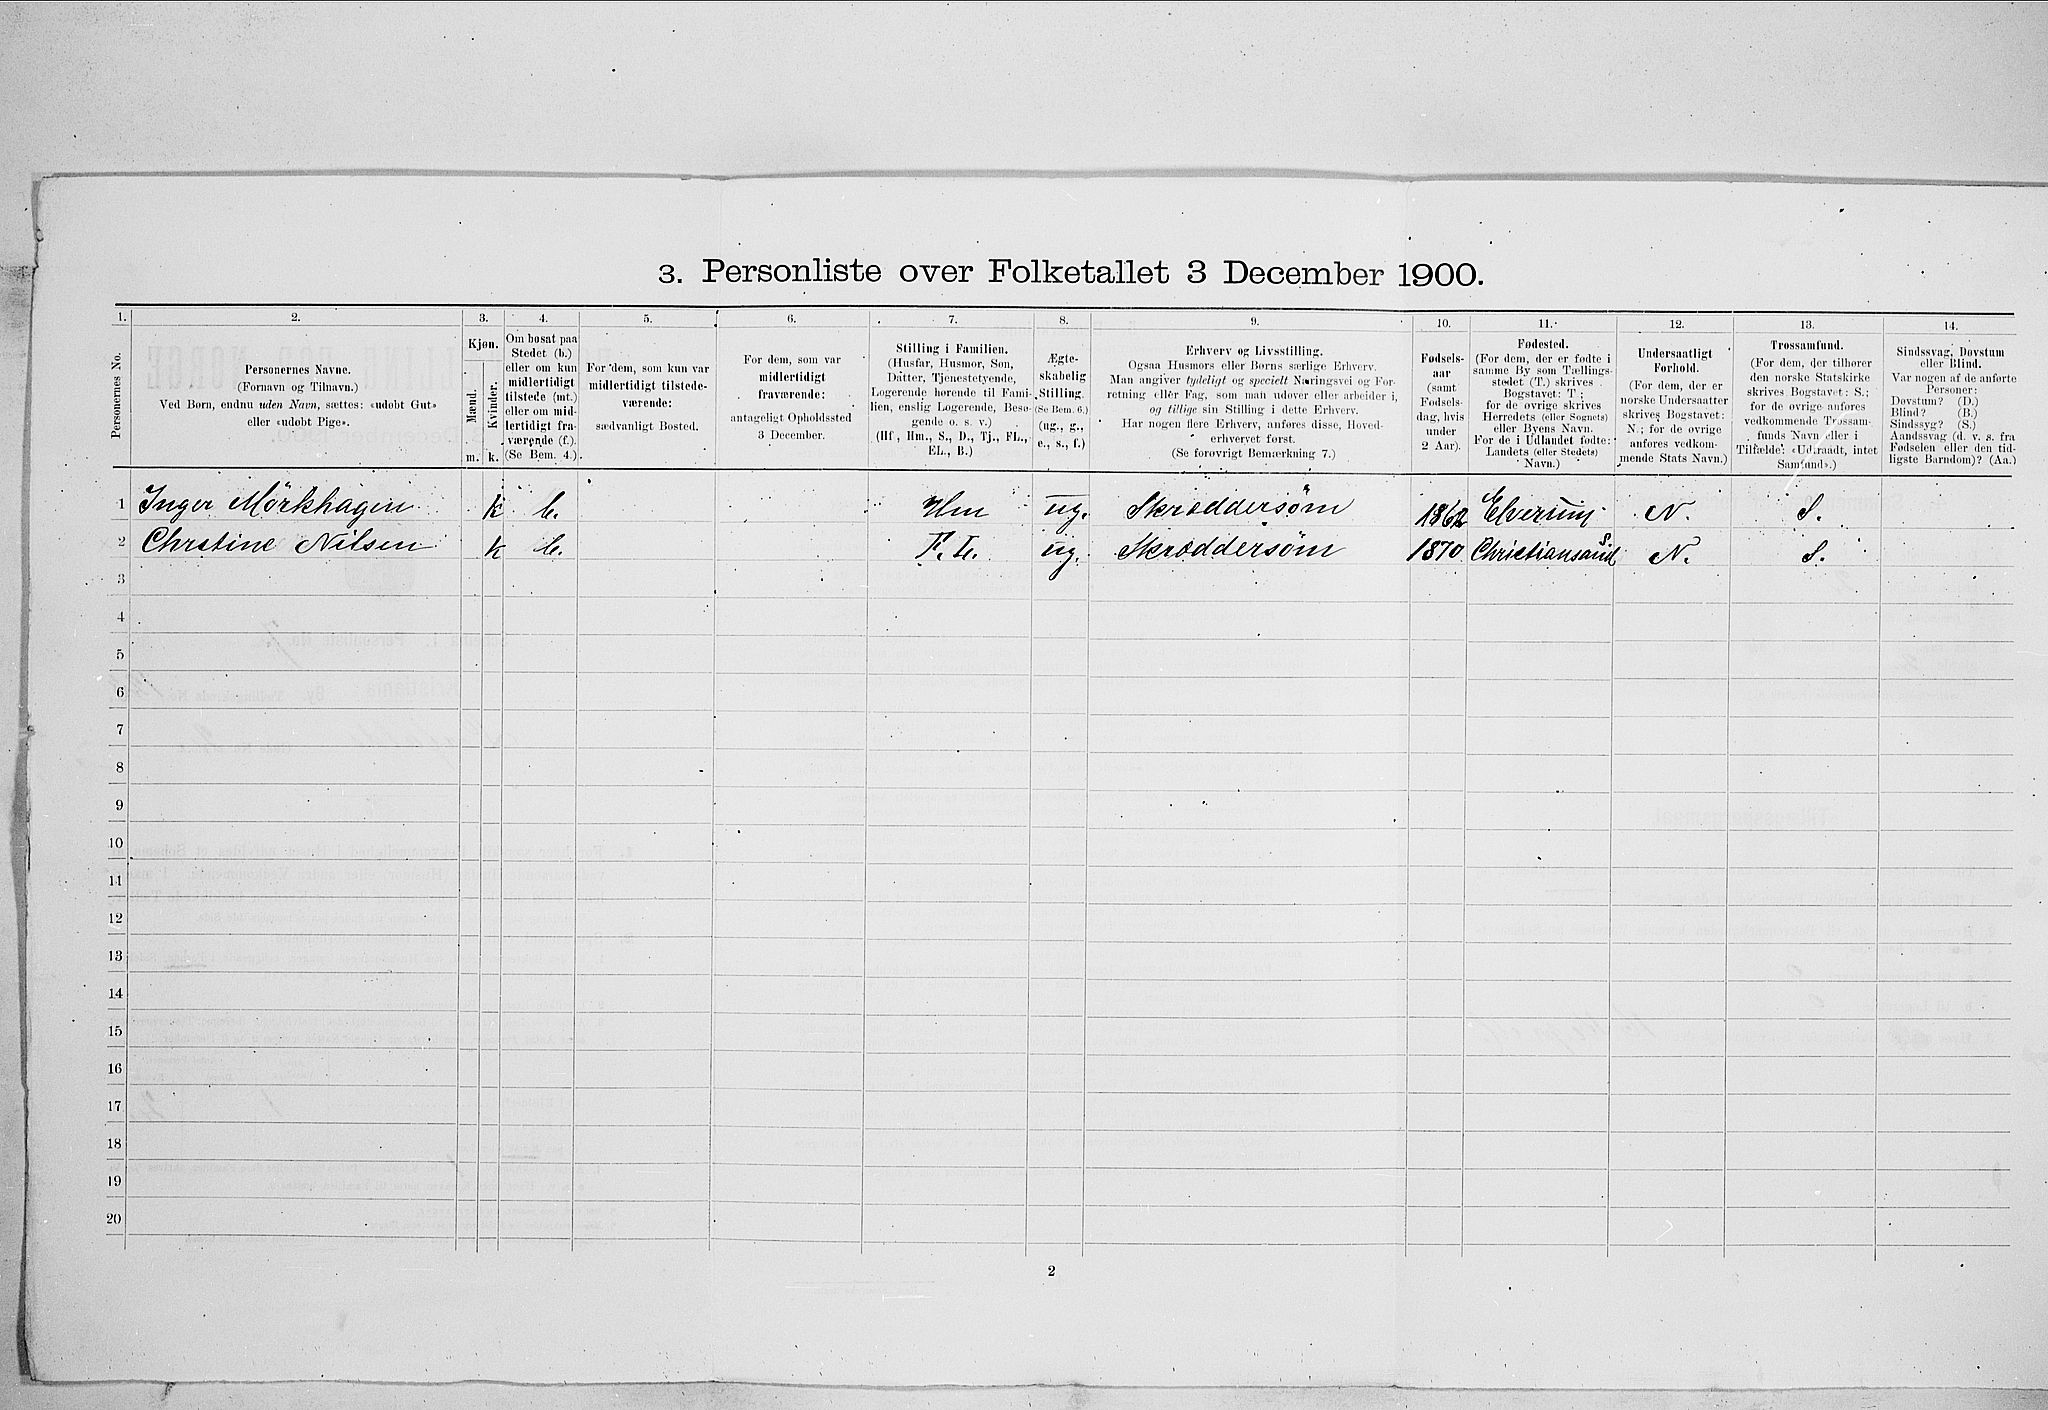 3. Personliste over Folketallet 3 December 1900.
1. 2. 3. 4. 5. 6. 7. 8. 9. 10. 11. 12. 13. 14.
Personernes No.
Personernes Navne.
(Fornavn og Tilnavn.)
Ved Børn, endnu uden Navn, sættes: «udøbt Gut»
eller «udøbt Pige».
Kjøn.
Mænd.
Kvinder.
m. k.
Om bosat paa
Stedet (b.)
eller om kun
midlertidigt
tilstede (mt.)
eller om mid-
lertidigt fra-
værende (f.).
(Se Bem. 4.)
For dem, som kun var
midlertidigt tilstede-
værende:
sædvanligt Bosted.
For dem, som var
midlertidigt
fraværende:
antageligt Opholdssted
3 December.
Stilling i Familien.
(Husfar, Husmor, Søn,
Datter, Tjenestetyende,
Logerende hørende til Fami-
lien, enslig Logerende, Besø-
gende o. s. v.)
(Hf., Hm., S., D., Tj., FL.,
EL., B.)
Ægte-
skabelig
Stilling.
(Se Bem. 6.)
(ug., g.,
e., s., f.)
Erhverv og Livsstilling.
Ogsaa Husmors eller Børns særlige Erhverv.
Man angiver tydeligt og specielt Næringsvei og For-
retning eller Fag, som man udøver eller arbeider i,
og tillige sin Stilling i dette Erhverv.
Har nogen flere Erhverv, anføres disse, Hoved-
erhvervet først.
(Se forøvrigt Bemærkning 7.)
Fødsels-
aar
(samt
Fødsels-
dag, hvis
under
2 Aar).
Fødested.
(For dem, der er fødte i
samme By som Tællings-
stedet (T.) skrives
Bogstavet: T;
for de øvrige skrives
Herredets (eller Sognets)
eller Byens Navn.
For de i Udlandet fødte:
Landets (eller Stedets)
Navn.)
Undersaatligt
Forhold.
(For dem, der er
norske Undersaatter
skrives Bogstavet:
N.; for de øvrige
anføres vedkom-
mende Stats Navn.)
Trossamfund.
(For dem, der tilhører
den norske Statskirke
skrives Bogstavet: S.;
for de øvrige anføres
vedkommende Trossam-
funds Navn eller i
Tilfælde: «Udtraadt, intet
Samfund».)
Sindssvag, Døvstum
eller Blind.
Var nogen af de anførte
Personer:
Døvstum? (D.)
Blind? (B.)
Sindssyg? (S.)
Aandssvag (d. v. s. fra
Fødselen eller den tid-
ligste Barndom)? (Aa.)
1 Inger Mörkhagen k b. Hm ug. Skræddersøm 1862 Elverum N. S.
2 Chrstine Nilsen k b. F. L. ug. Skræddersøm 1870 Christiansand S. N. S.
3
4
5
6
7
8
9
10
11
12
13
14
15
16
17
18
19
20
2